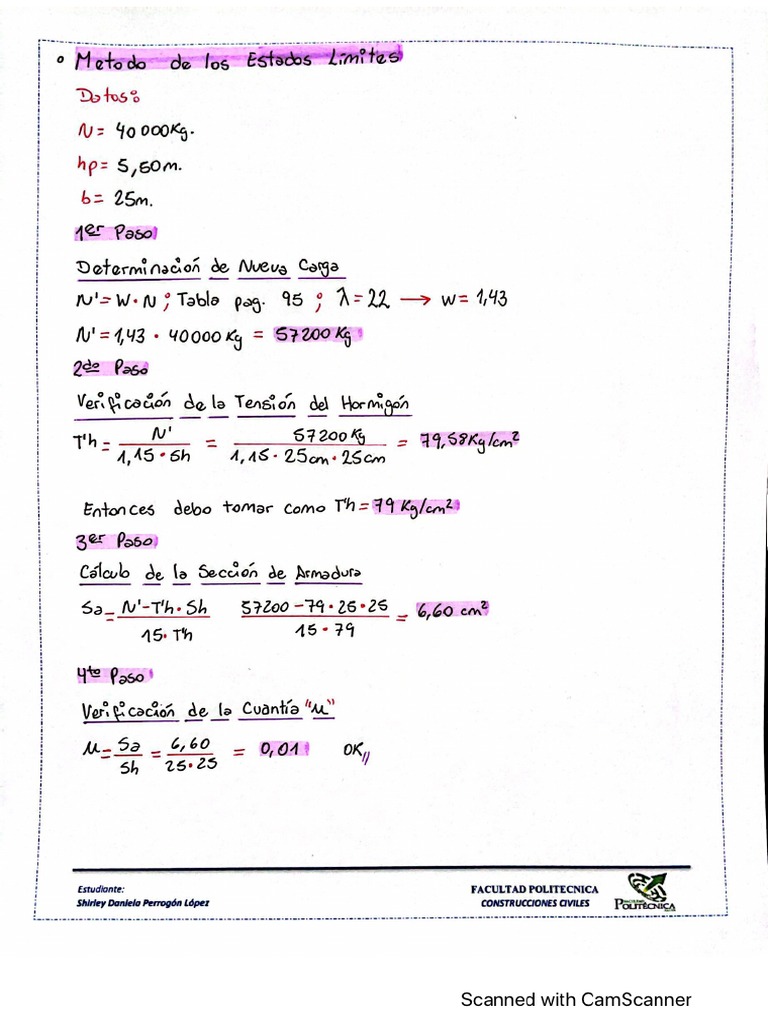 ° Metodo de los Estados Límites
Datos:
N = 40 000Kg.
hp = 5,50m.
b = 25m.
1er Paso
Determinación de Nueva Carga
N' = W · N ; Tabla pag. 95 ; λ = 22 → w = 1,43
N' = 1,43 · 40000 Kg = 57200 Kg
2do Paso
Verificación de la Tensión del Hormigón
T'h = N' / 1,15 · Sh = 57200 Kg / 1,15 · 25cm · 25cm = 79,58Kg/cm²
Entonces debo tomar como T'h = 79 Kg/cm²
3er Paso
Cálculo de la Sección de Armadura
Sa = N' - T'h · Sh / 15 · T'h 57200 - 79 · 25 · 25 / 15 · 79 = 6,60 cm²
4to Paso
Verificación de la Cuantía "μ"
μ = Sa / Sh = 6,60 / 25 · 25 = 0,01 OK//
Estudiante:
Shirley Daniela Perrogón López
FACULTAD POLITECNICA
CONSTRUCCIONES CIVILES
POLITÉCNICA
Scanned with CamScanner